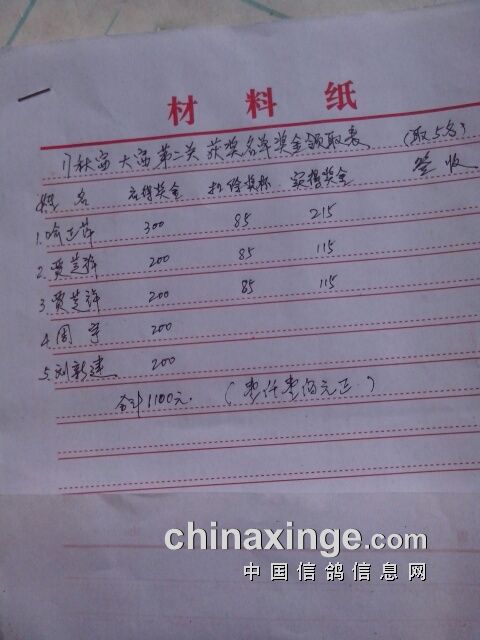 材料纸
秋富大富第二关获奖名单奖金领取表 (取5名)
姓名 应得奖金 扣除奖杯 实得奖金 签收
1. 正萍 300 85 215
2. 贾芝祥 200 85 115
3. 贾芝祥 200 85 115
4. 周宇 200
5. 刘新建 200
合计1100元. (壹仟壹佰元正)
chinaxinge.com
中国信鸽信息网